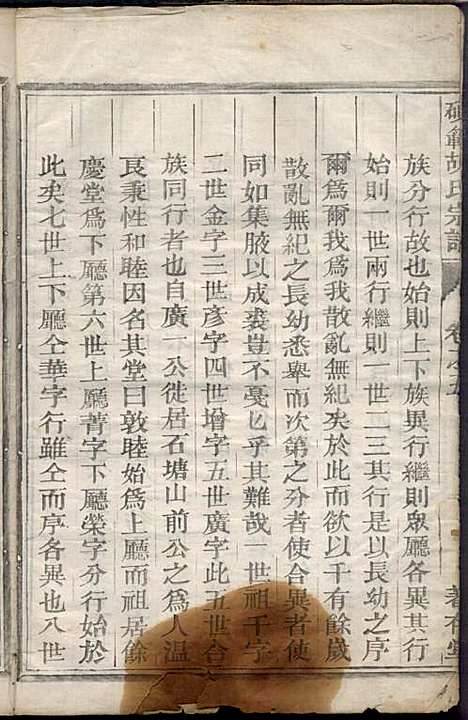 胡氏宗譜 卷之五
族分行故也始則上下族異行繼則眾廳各異其行
始則一世兩行繼則一世二三其行以長幼之序
爾為爾我為我散亂無紀矣於此而欲以千有餘歲
散亂無紀之長幼悉舉而次第之分者使合異者使
同如集腋以成裘豈不戞乀乎其難哉一世祖千字
二世金字三世彥字四世增字五世廣字此五世合
族同行者也自廣一公徙居石塘山前公之為人溫
良秉性和睦因名其堂曰敦睦始為上廳而祖居餘
慶堂為下廳第六世上廳菁字下廳榮字分行始於
此矣七世上下廳仝華字行雖仝而序各異也八世